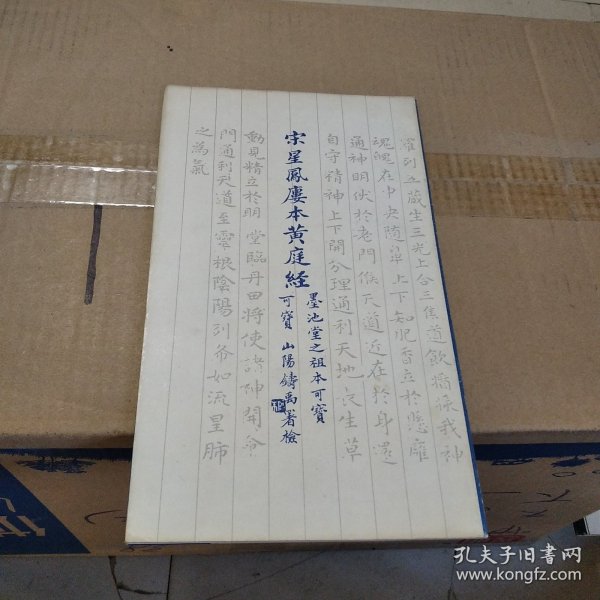 羅列五藏生三光上合三焦道飲醬漿我神
魂魄在中央隨鼻上下知肥香立於懸雍
通神明伏於老門候天道近在於身還
自守精神上下開分理通利天地長生草
宋星鳳廔本黄庭経
墨池堂之祖本可寶
可寶 山陽鑄禹署檢
動見精立於明堂臨丹田將使諸神開命
門通利天道至靈根陰陽列布如流星肺
之為氣
孔夫子旧书网
www.kongfz.com